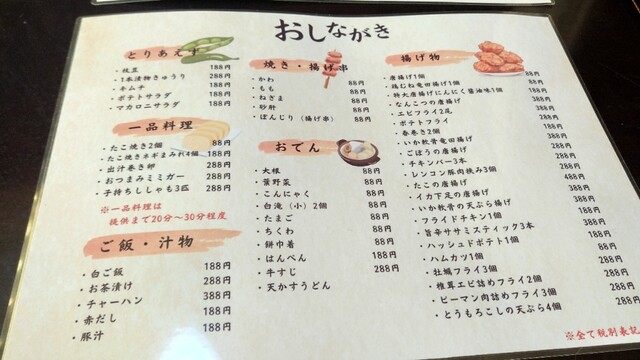 おしながき
とりあえず
・枝豆 188円
・1本漬物きゅうり 288円
・キムチ 188円
・ポテトサラダ 188円
・マカロニサラダ 188円
一品料理
・たこ焼き2個 88円
・たこ焼きネギまみれ4個 188円
・出汁巻き卵 288円
・おつまみミミガー 288円
・子持ちししゃも3匹 288円
※一品料理は
提供まで20分～30分程度
ご飯・汁物
・白ご飯 188円
・お茶漬け 288円
・チャーハン 388円
・赤だし 188円
・豚汁 188円
焼き・揚げ串
・かわ 88円
・もも 88円
・ねぎま 88円
・砂肝 88円
・ぼんじり（揚げ串） 88円
おでん
・大根 88円
・葉野菜 88円
・こんにゃく 88円
・白滝（小）2個 88円
・たまご 88円
・ちくわ 88円
・餅巾着 88円
・はんぺん
・牛すじ
・天かすうどん 288円
揚げ物
・唐揚げ1個 88円
・鶏むね竜田揚げ1個 88円
・特大唐揚げにんにく醤油味1個 188円
・なんこつの唐揚げ 388円
・エビフライ2尾
・ポテトフライ
・春巻き2個
・いか軟骨竜田揚げ
・ごぼうの唐揚げ
・チキンバー3本
・レンコン豚肉挟み3個
・たこの唐揚げ
・イカ下足の唐揚げ
・いか軟骨の天ぷら揚げ
・フライドチキン1個
・旨辛ササミスティック3本
・ハッシュドポテト1個
・ハムカツ1個
・牡蠣フライ3個
・椎茸エビ詰めフライ2個
・ピーマン肉詰めフライ3個
・とうもろこしの天ぷら4個 288円
※全て税別表記